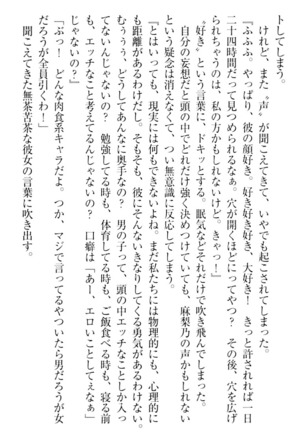 トしてしまう。
けれど、また〝声〟が聞こえてきて、いやでも起こされてしまった。
『ふふふ、やっぱり、彼の顔好き。好き好き好き、大好き！　きっと許されれば一日
二十四時間だって見つめられるなぁ。穴が開くほどにってやつ？　その後、穴を広げ
られちゃうのは、私の方かもしれないけど。きゃっ！』
〝好き〟という言葉に、ドキッとする。眠気などそれだけで吹き飛んでしまった。
自分の妄想だと頭の中でどれだけ強く決めつけていても、麻梨乃の声かもしれない
という疑念は消えなくて、つい無意識に反応してしまう。
『とはいっても、現実には何もできないよね。まだ私たちには物理的にも、心理的に
も距離があるわけだし。そもそも、彼にそんないきなりしてくる勇気があるわけない。
むぅぅぅ、どうしてあんなに奥手なの？　男の子って、頭の中エッチなことしか入っ
てないんじゃないの？　勉強してる時も、体育してる時も、ご飯食べる時も、寝る前
も、エッチなこと考えてるんじゃないの？　口癖は「あー、エロいことしてぇなぁ」
じゃないの？』
「ぶっ！　どんな肉食系キャラだよ。つか、マジで言ってるやついたら男だろうが女
だろうが全員引くわ！」
聞こえてきた無茶苦茶な彼女の言葉に吹き出す。